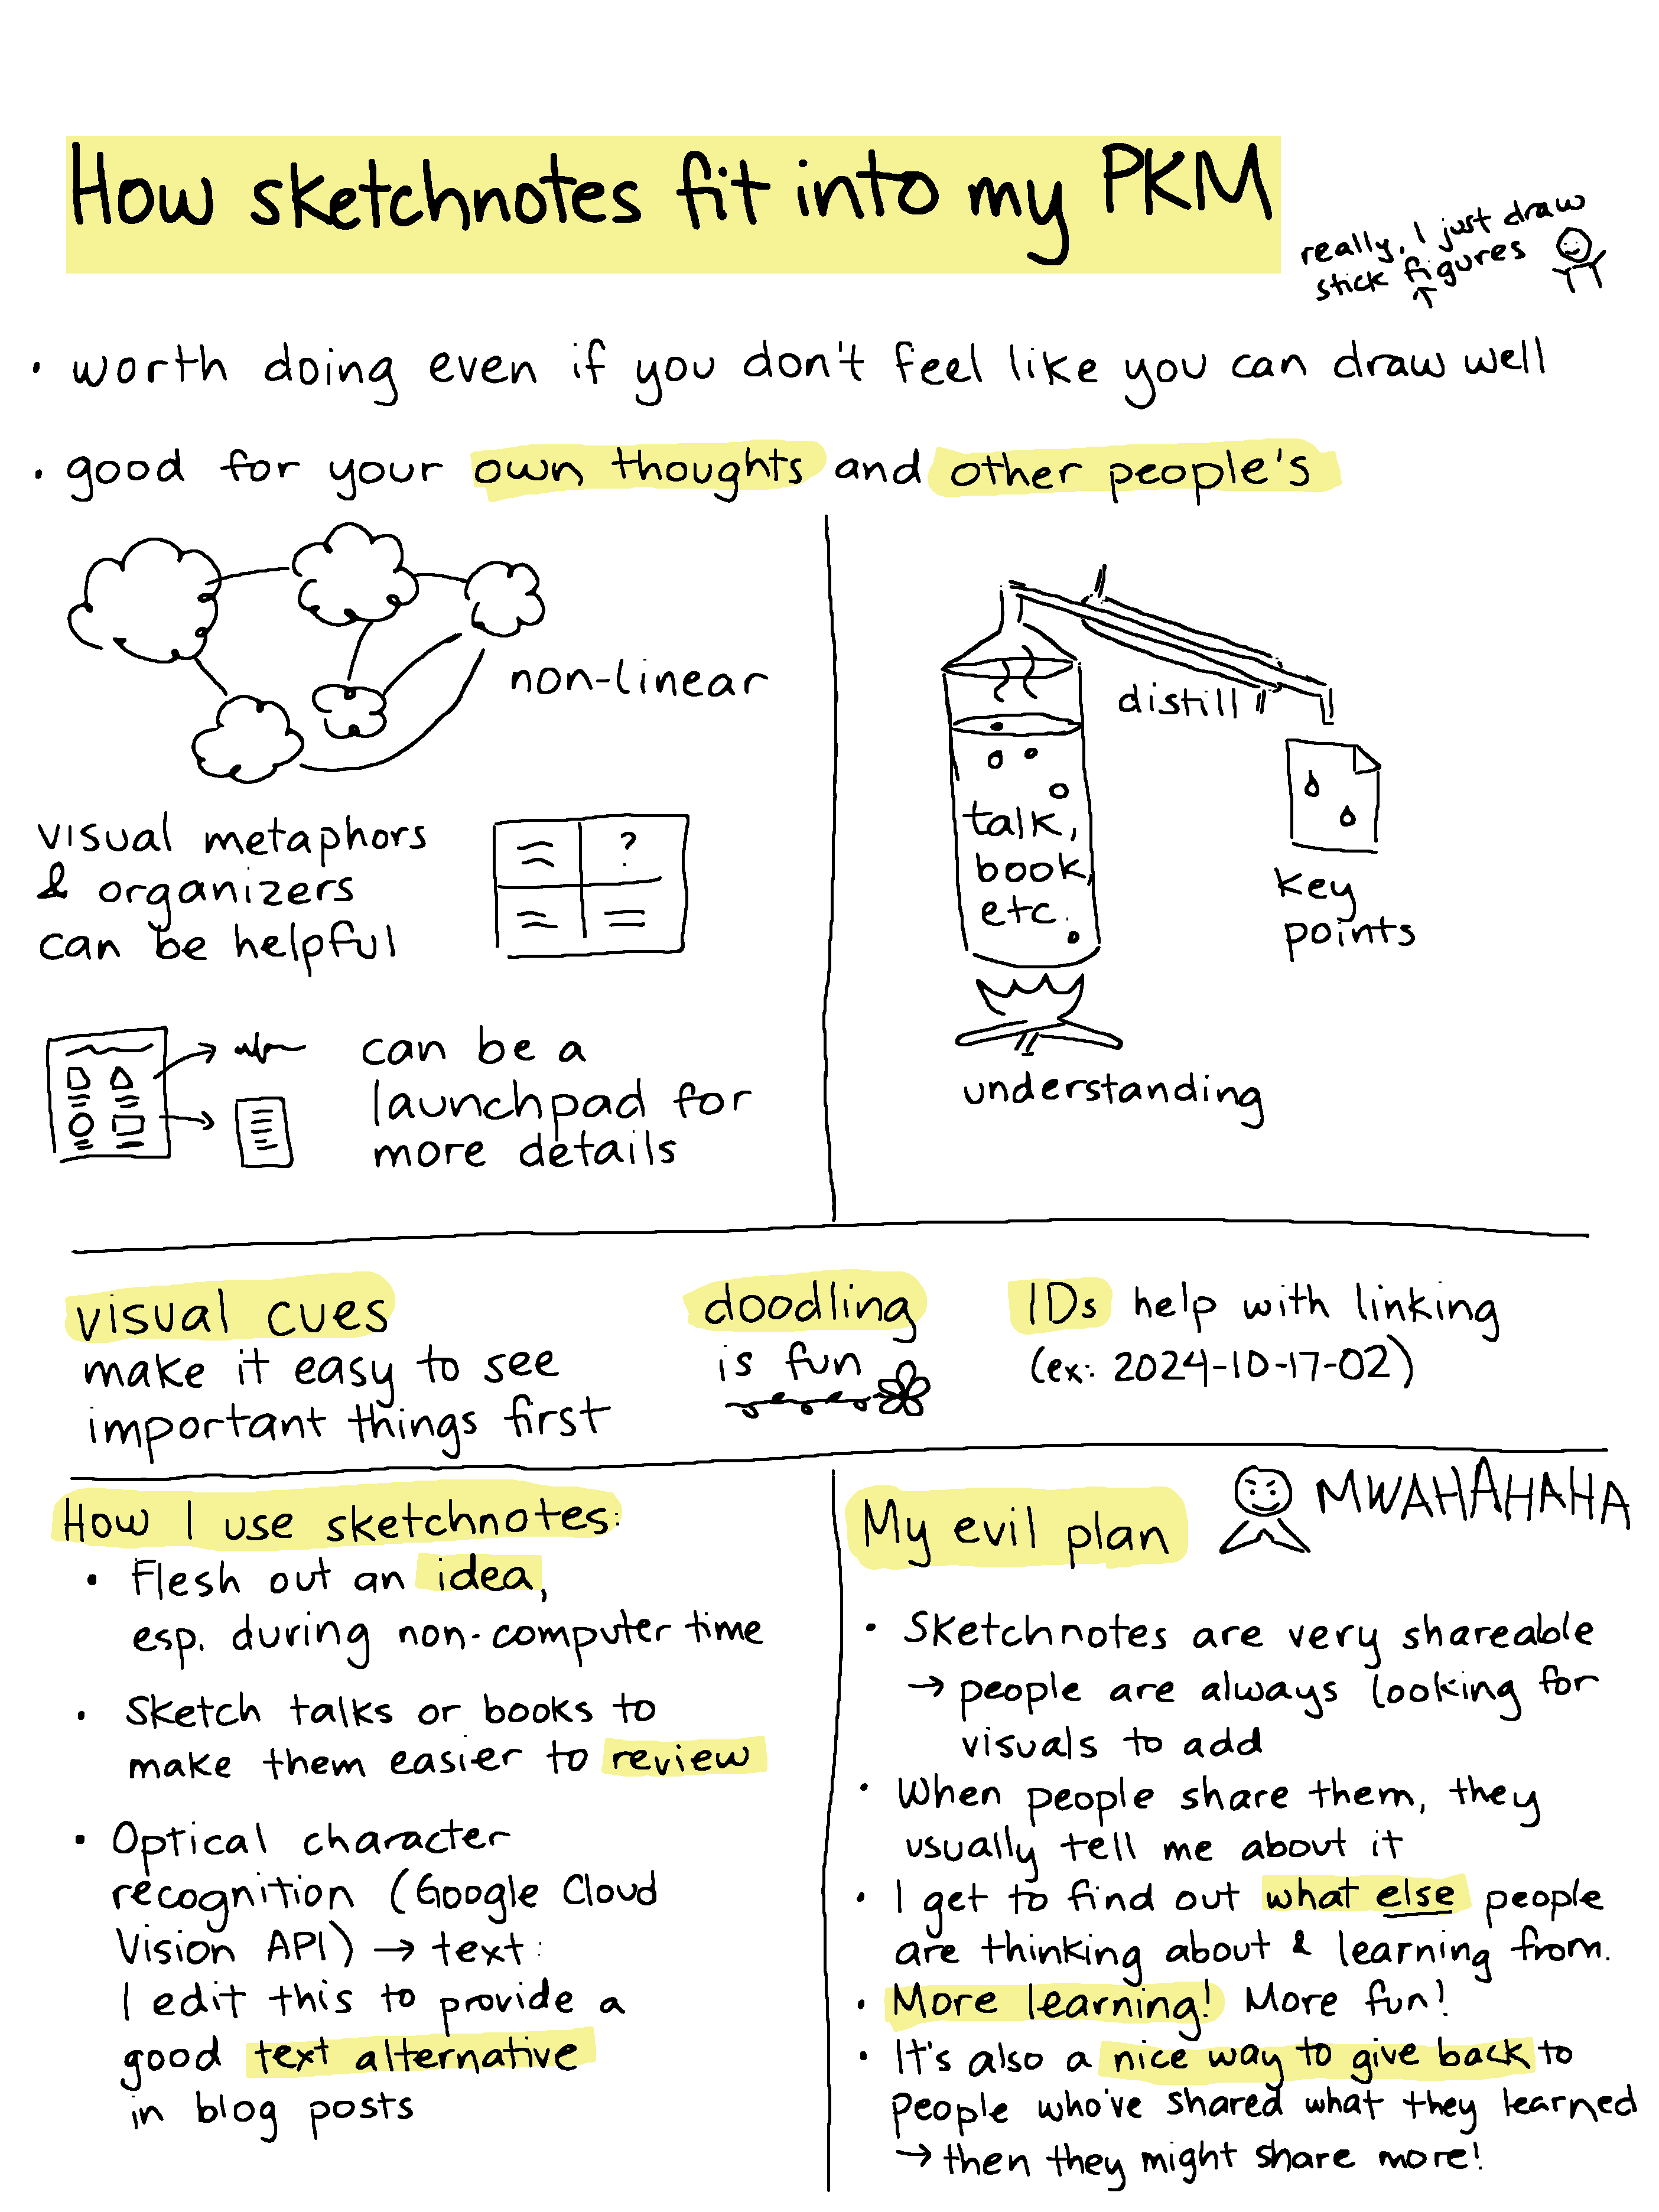 How sketchnotes fit into my PKM
really, I just draw
stick figures
• worth doing even if you don't feel like you can draw well
• good for your own thoughts and other people's
non-linear
visual metaphors
& organizers
can be helpful
?
can be a
launchpad for
more details
distill
talk,
book,
etc.
key
points
understanding
visual cues
make it easy to see
important things first
doodling
is fun
IDs help with linking
(ex: 2024-10-17-02)
How I use sketchnotes:
• Flesh out an idea,
esp. during non-computer time
• Sketch talks or books to
make them easier to review
• Optical character
recognition (Google Cloud
Vision API) → text:
I edit this to provide a
good text alternative
in blog posts
My evil plan
MWAHAHAHA
• Sketchnotes are very shareable
→ people are always looking for
visuals to add
• When people share them, they
usually tell me about it
• I get to find out what else people
are thinking about & learning from.
• More learning! More fun!
• It's also a nice way to give back to
people who've shared what they learned
→ then they might share more!